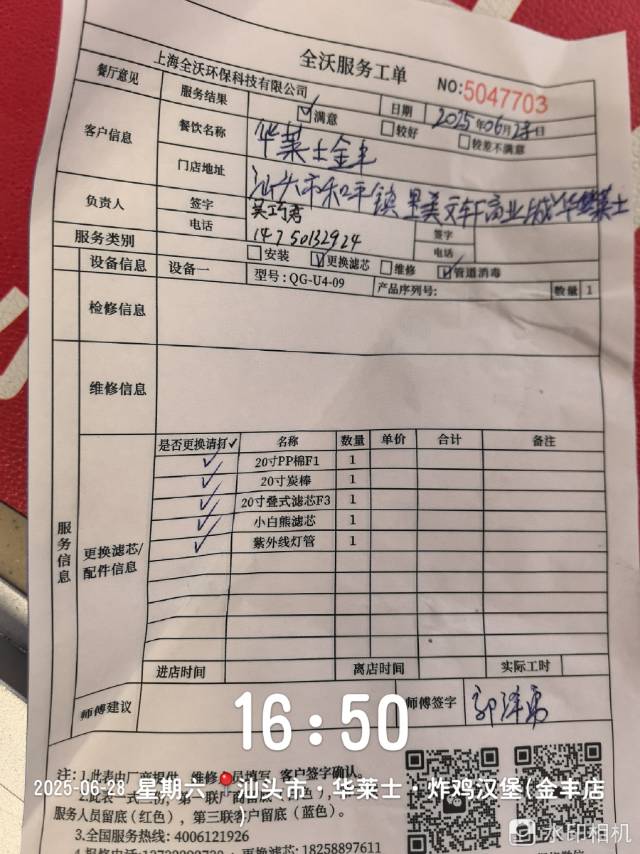 上海全沃环保科技有限公司 全沃服务工单 NO:5047703
餐厅意见 服务结果 ☑满意 □较好 □较差不满意
日期 2025年06月28日
客户信息 餐饮名称 华莱士金丰
门店地址 汕头市和平镇里美文轩商业城华莱士
负责人 签字 签字
电话 14750132924 电话
服务类别 □安装 ☑更换滤芯 □维修 ☑管道消毒
设备信息 设备一 型号:QG-U4-09 产品序列号: 数量 1
检修信息
维修信息
服务信息
更换滤芯/配件信息
是否更换请打✓ 名称 数量 单价 合计 备注
✓ 20寸PP棉F1 1
✓ 20寸炭棒 1
✓ 20寸叠式滤芯F3 1
✓ 小白熊滤芯 1
✓ 紫外线灯管 1
进店时间 离店时间 实际工时
师傅建议 师傅签字
16:50
注:1.此表由厂商提供,维修人员填写,客户签字确认。
2025-06-28 星期六 汕头市·华莱士·炸鸡汉堡(金丰店)
2.此表一式三份,第一联厂商留底
服务人员留底(红色),第三联客户留底(蓝色)。
3.全国服务热线:4006121926
18258897611
水印相机